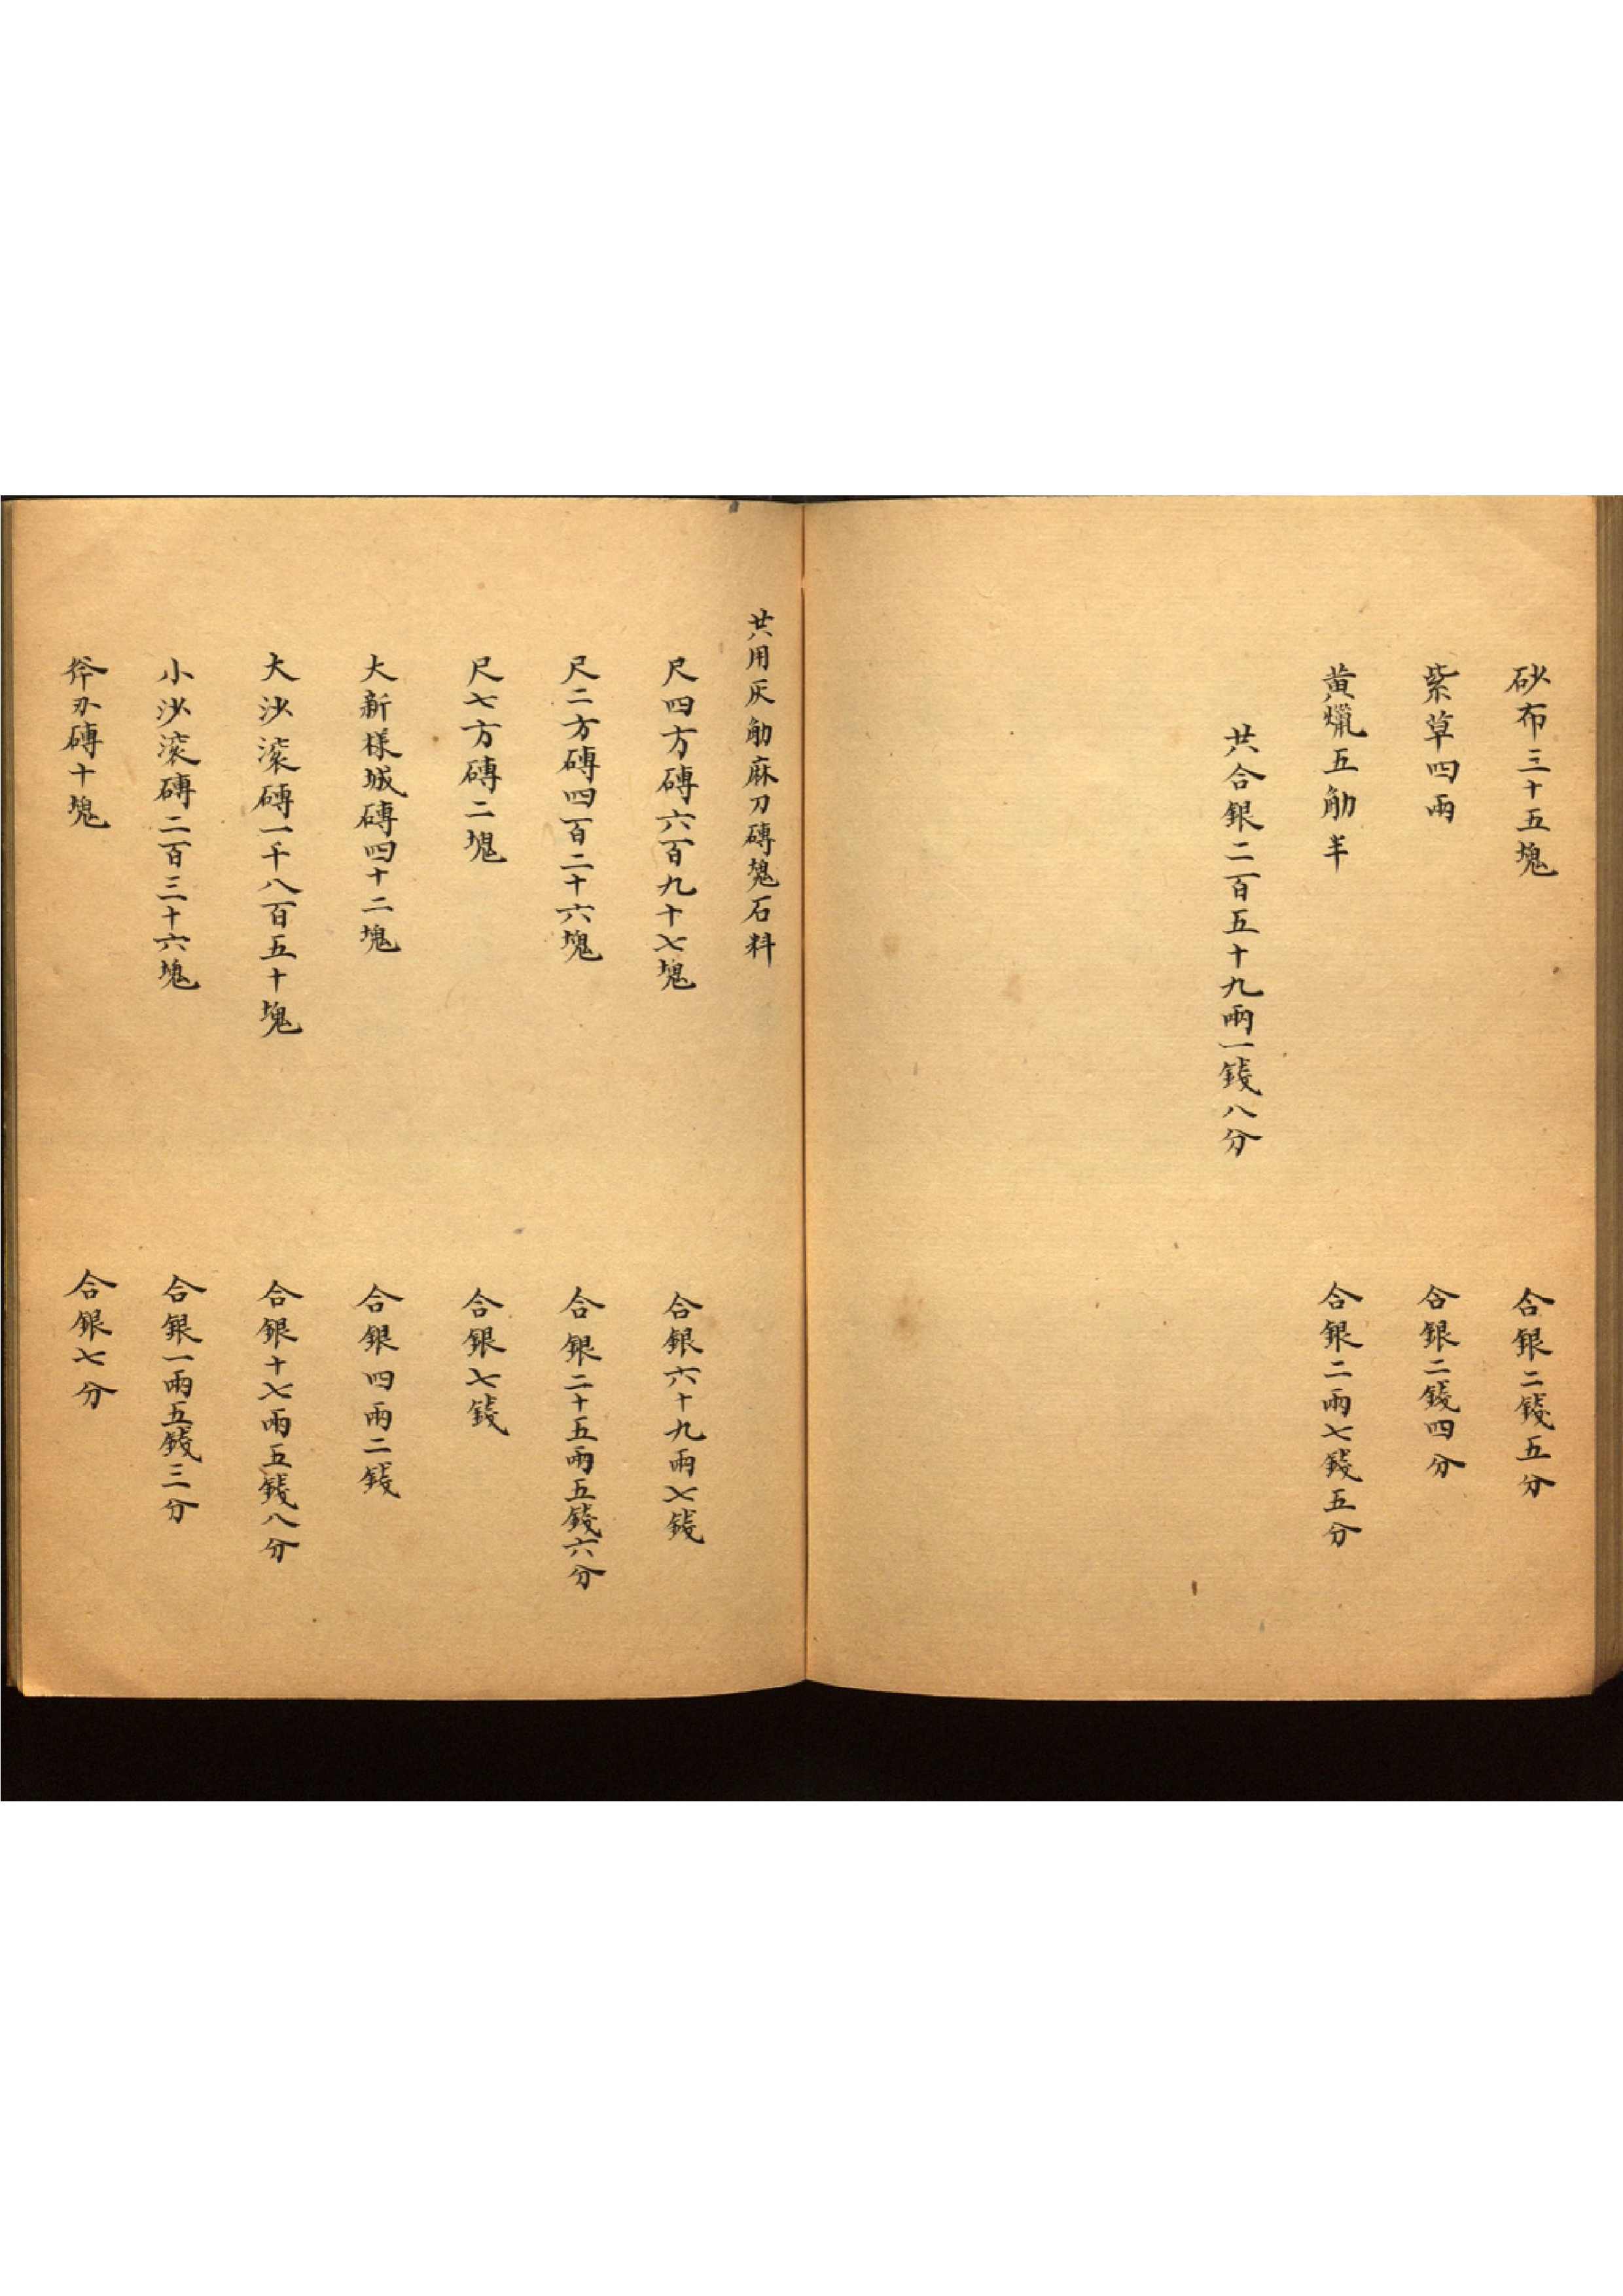 砂布三十五塊　合銀二錢五分
紫草四兩　合銀二錢四分
黄蠟五觔半　合銀二兩七錢五分
共合銀二百五十九兩一錢八分
共用灰觔麻刀磚塊石料
尺四方磚六百九十七塊　合銀六十九兩七錢
尺二方磚四百二十六塊　合銀二十五兩五錢六分
尺七方磚二塊　合銀七錢
大新樣城磚四十二塊　合銀四兩二錢
大沙滚磚一千八百五十塊　合銀十七兩五錢八分
小沙滚磚二百三十六塊　合銀一兩五錢三分
斧刃磚十塊　合銀七分